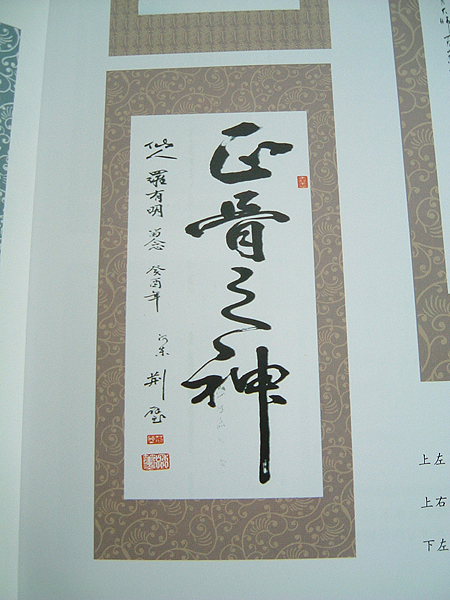 正骨之神
仙人 羅有明 留念 癸酉年
河东 荆璧
上左
上右
下左